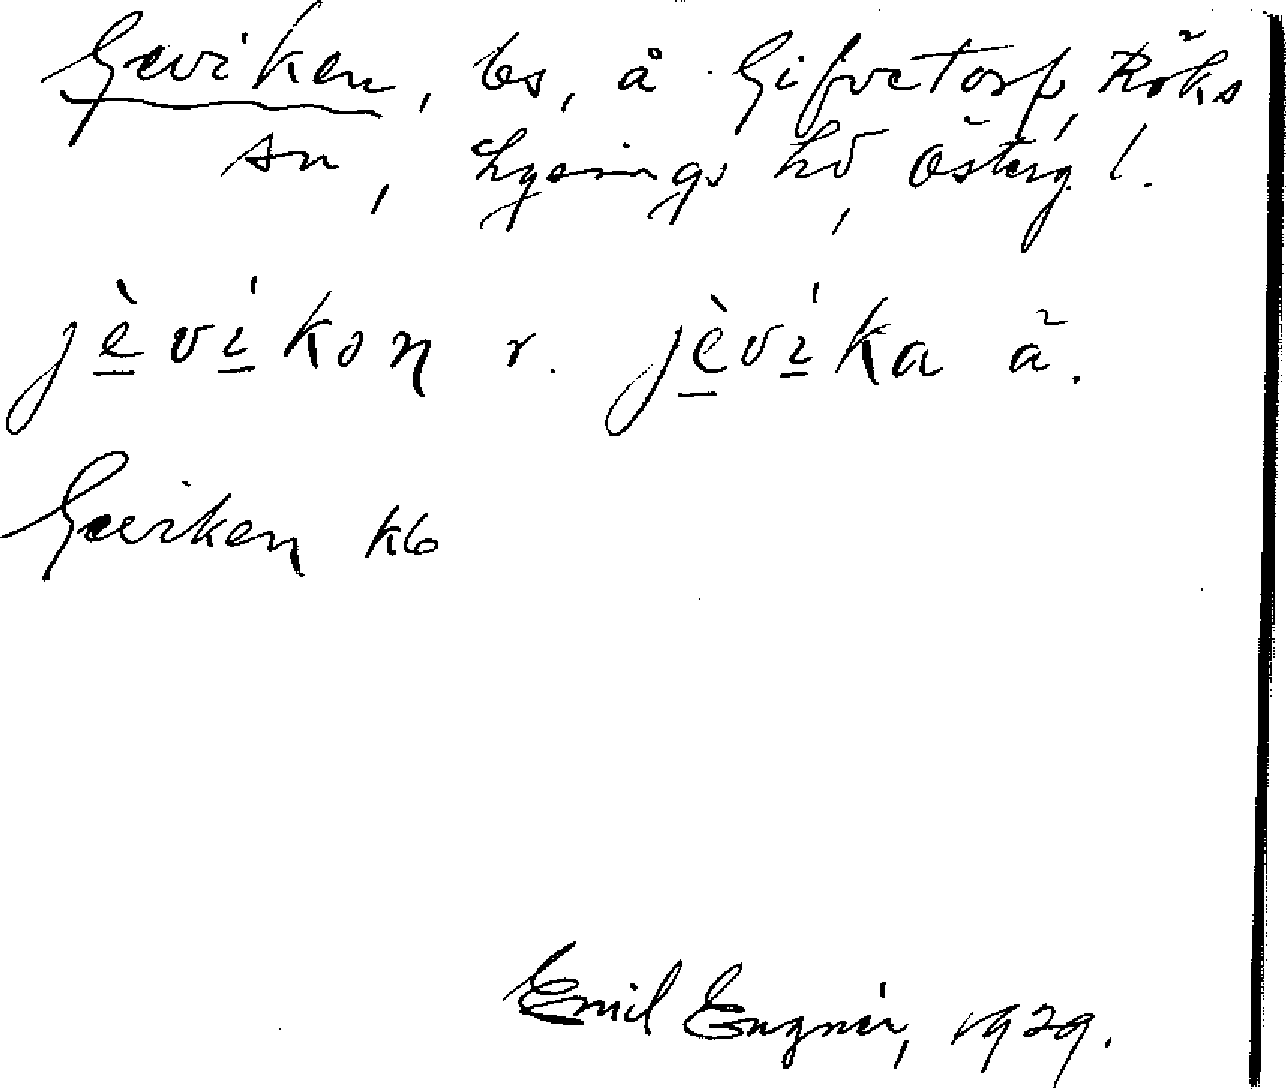 Geviken, bs, å Gifvetorp, Röks
sn, Lysings hd, Östergl.
jèvíkən r. jèvíka ä.
Geviken kb
Emil Engnér, 1929.